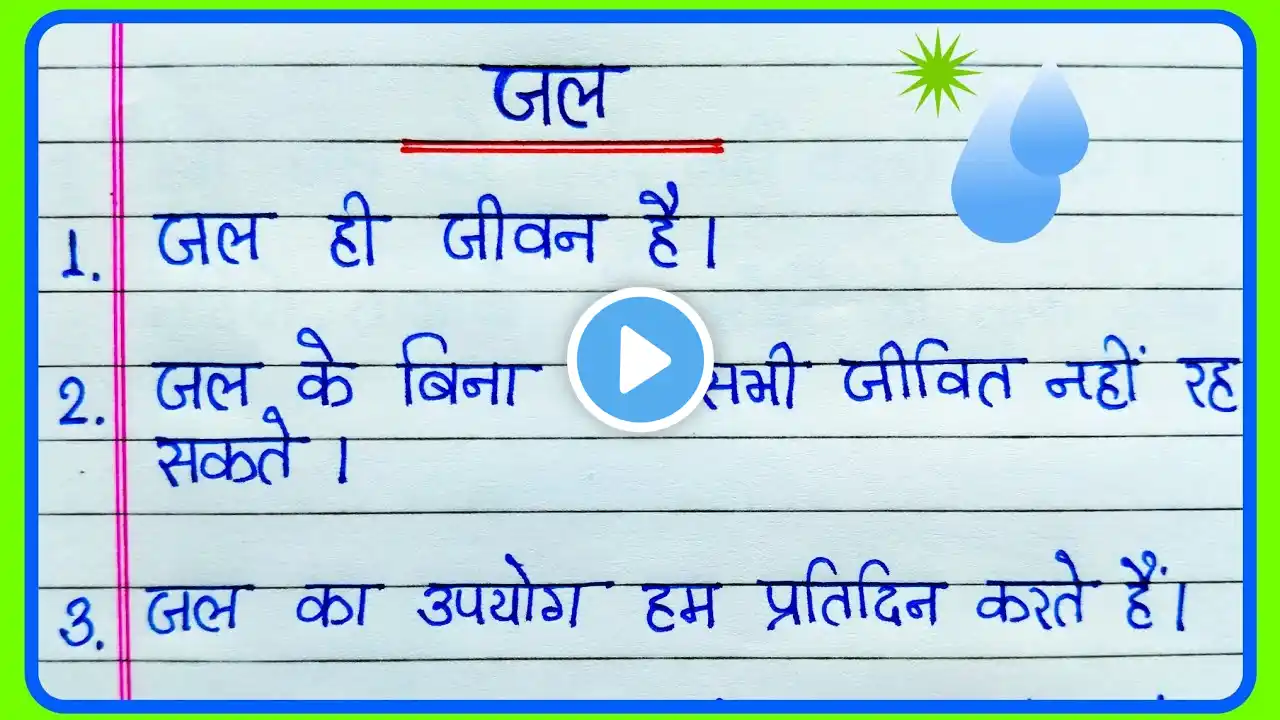 जल
1. जल ही जीवन है।
2. जल के बिना सभी जीवित नहीं रह
सकते ।
3. जल का उपयोग हम प्रतिदिन करते हैं।